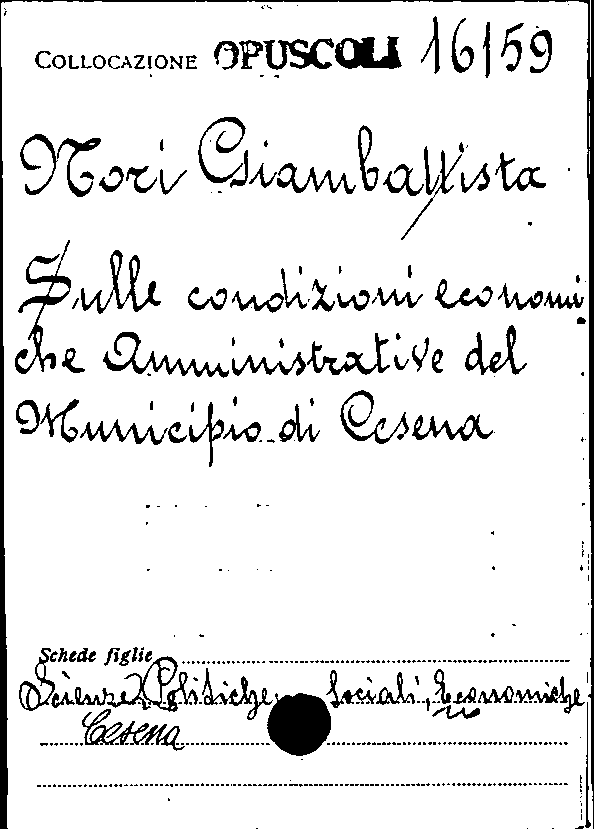 COLLOCAZIONE OPUSCOLI 16/59
Nori Giambattista
Sulle condizioni economi
che Amministrative del
Municipio di Cesena
Schede figlie
Scienze Politiche Sociali, Economiche
Cesena